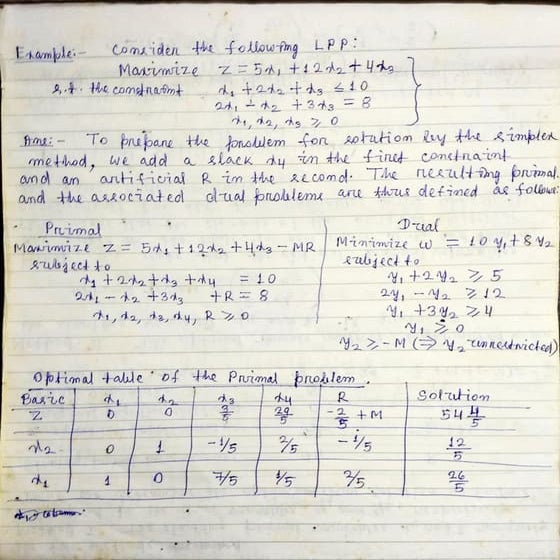 Example:- Consider the following LPP:
Maximize Z = 5x₁ + 12x₂ + 4x₃
s.t. the constraint x₁ + 2x₂ + x₃ ≤ 10
2x₁ - x₂ + 3x₃ = 8
x₁, x₂, x₃ ≥ 0
Ans:- To prepare the problem for solution by the simplex
method, we add a slack x₄ in the first constraint
and an artificial R in the second. The resulting primal
and the associated dual problems are thus defined as follow:
Primal
Maximize Z = 5x₁ + 12x₂ + 4x₃ - MR
subject to
x₁ + 2x₂ + x₃ + x₄ = 10
2x₁ - x₂ + 3x₃ + R = 8
x₁, x₂, x₃, x₄, R ≥ 0
Dual
Minimize w = 10y₁ + 8y₂
subject to
y₁ + 2y₂ ≥ 5
2y₁ - y₂ ≥ 12
y₁ + 3y₂ ≥ 4
y₁ ≥ 0
y₂ ≥ -M (⇒ y₂ unrestricted)
Optimal table of the Primal problem.
Basic x₁ x₂ x₃ x₄ R Solution
Z 0 0 3/5 29/5 -2/5 + M 54 4/5
x₂ 0 1 -1/5 2/5 -1/5 12/5
x₁ 1 0 7/5 1/5 2/5 26/5